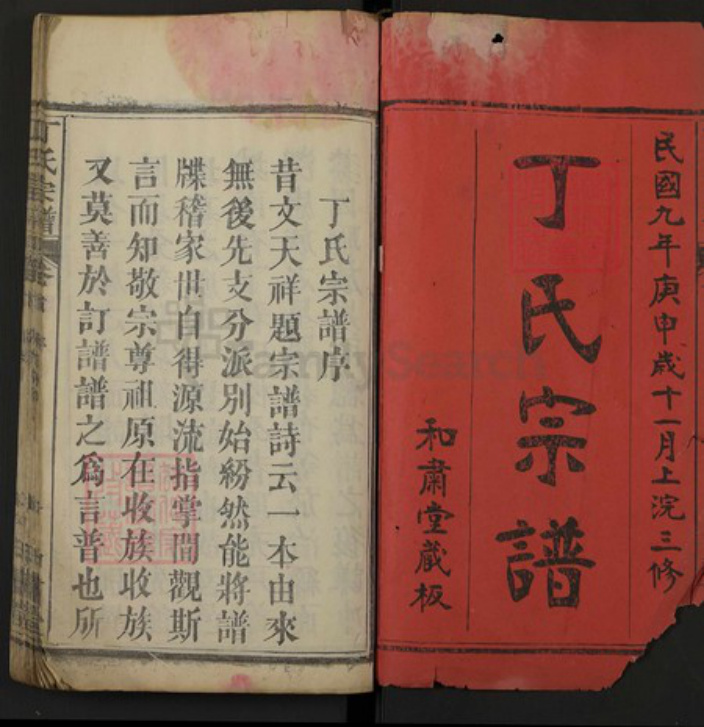 民國九年庚申歲十一月上浣三修
丁氏宗譜
和肅堂藏板
丁氏宗譜序
昔文天祥題宗譜詩云一本由來
無後先支分派別始紛然能將譜
牒稽家世自得源流指掌間觀斯
言而知敬宗尊祖原在收族收族
又莫善於訂譜譜之為言普也所
丁氏宗譜